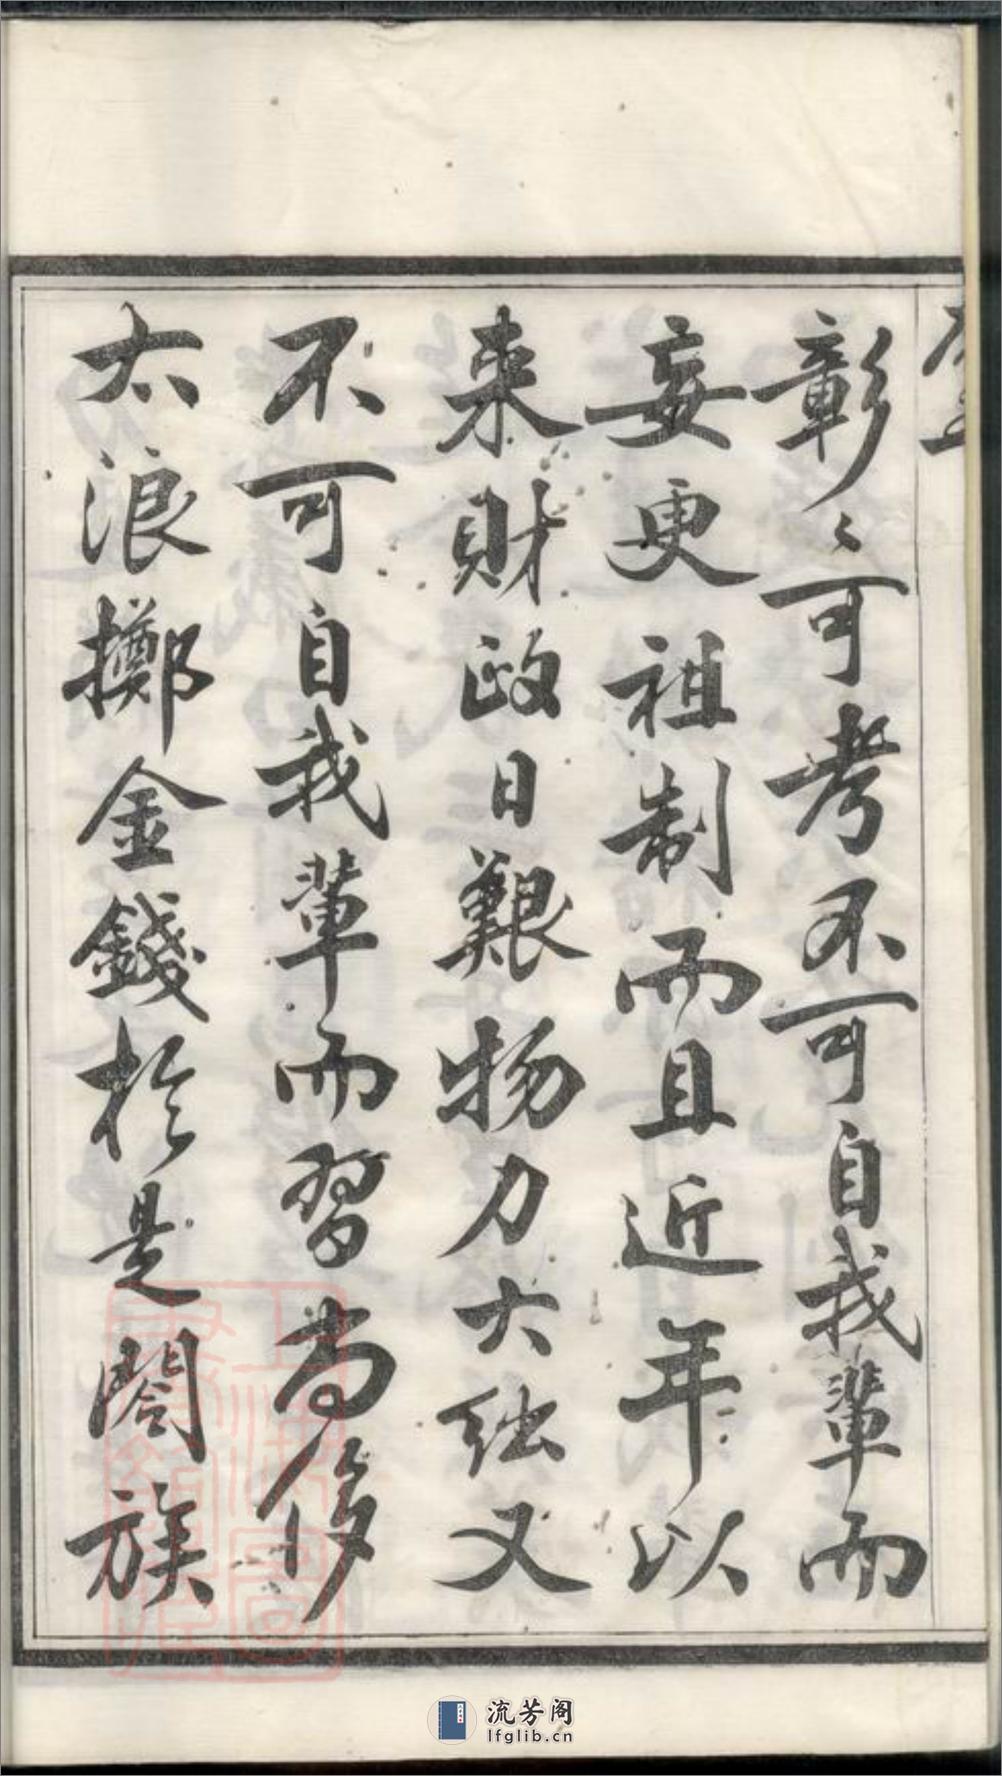 彰〻可考不可自我輩而
妄更祖制而且近年以
来財政日艱物力大絀又
不可自我輩而習尚侈
太浪擲金錢於是闔族
流芳阁
lfglib.cn